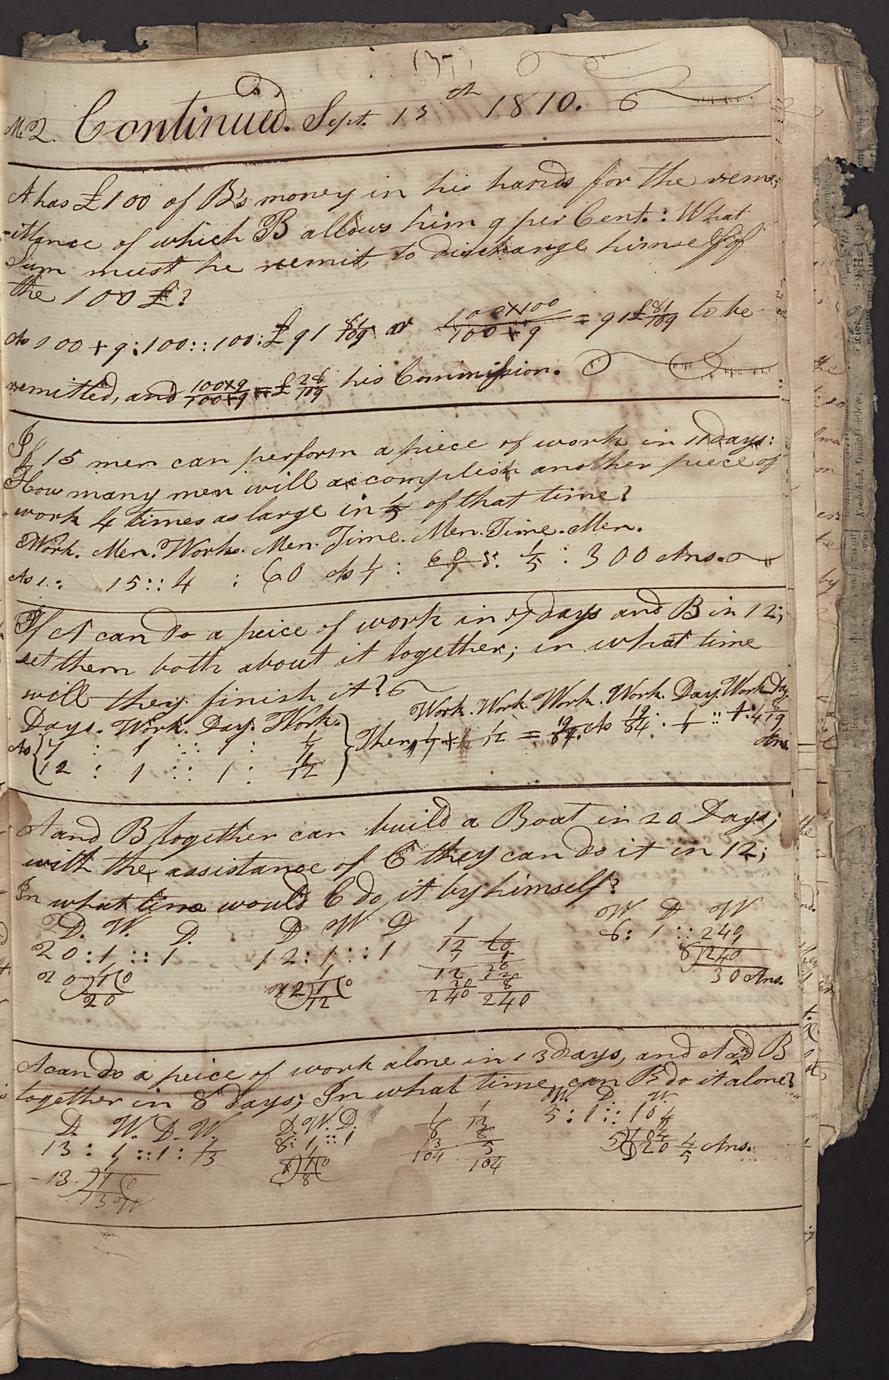 (37)
M. 2. Continued. Sept. 13th 1810.
A has £100 of B's money in his hands for the rem
-ittance of which B allows him 9 per Cent.: What
Sum must he remit to discharge himself of
the 100 £?
As 100 + 9 : 100 :: 100 : £ 91 81/109 or 100×100/100+9 = 91£ 81/109 to be
remitted, and 100×9/100+9 = £ 28/109 his Commission.
If 15 men can perform a piece of work in 11 days:
How many men will accomplish another piece of
work 4 times as large in 1/5 of that time?
Work. Men. Works. Men. Time. Men. Time. Men.
As 1 : 15 :: 4 : 60 As 1/1 : 60/1 :: 1/5 : 300 Ans.
If A can do a peice of work in 7 days and B in 12;
set them both about it together; in what time
will they finish it?
Work. Work. Work. Work. Day Work Day
Days. Work. Day. Work.
As { 7 : 1 :: 1 : 1/7 } Then, 1/7 + 1/12 = 19/84. As 19/84 : 1/1 :: 1/1 : 4 8/19
12 : 1 :: 1 : 1/12 Ans.
A and B together can build a Boat in 20 Days;
with the assistance of C they can do it in 12;
In what time would C do it by himself?
D. W. D. D W D 1/12 1/20 W D W
20 : 1 :: 1 12 : 1 :: 1 6 : 1 :: 240
20)1(0 12)1(0 8)240
20 12 240 240 30 Ans.
A can do a peice of work alone in 13 days, and A and B
together in 8 days; In what time can B do it alone?
D. W. D. W. D. W. D. 1/8 1/13 W. D. W.
13 : 1 :: 1 : 1/13 8 : 1 :: 1 5 : 1 :: 104
13)1(0 8)1(0 104 104 5)104
13 8 20 4/5 Ans.